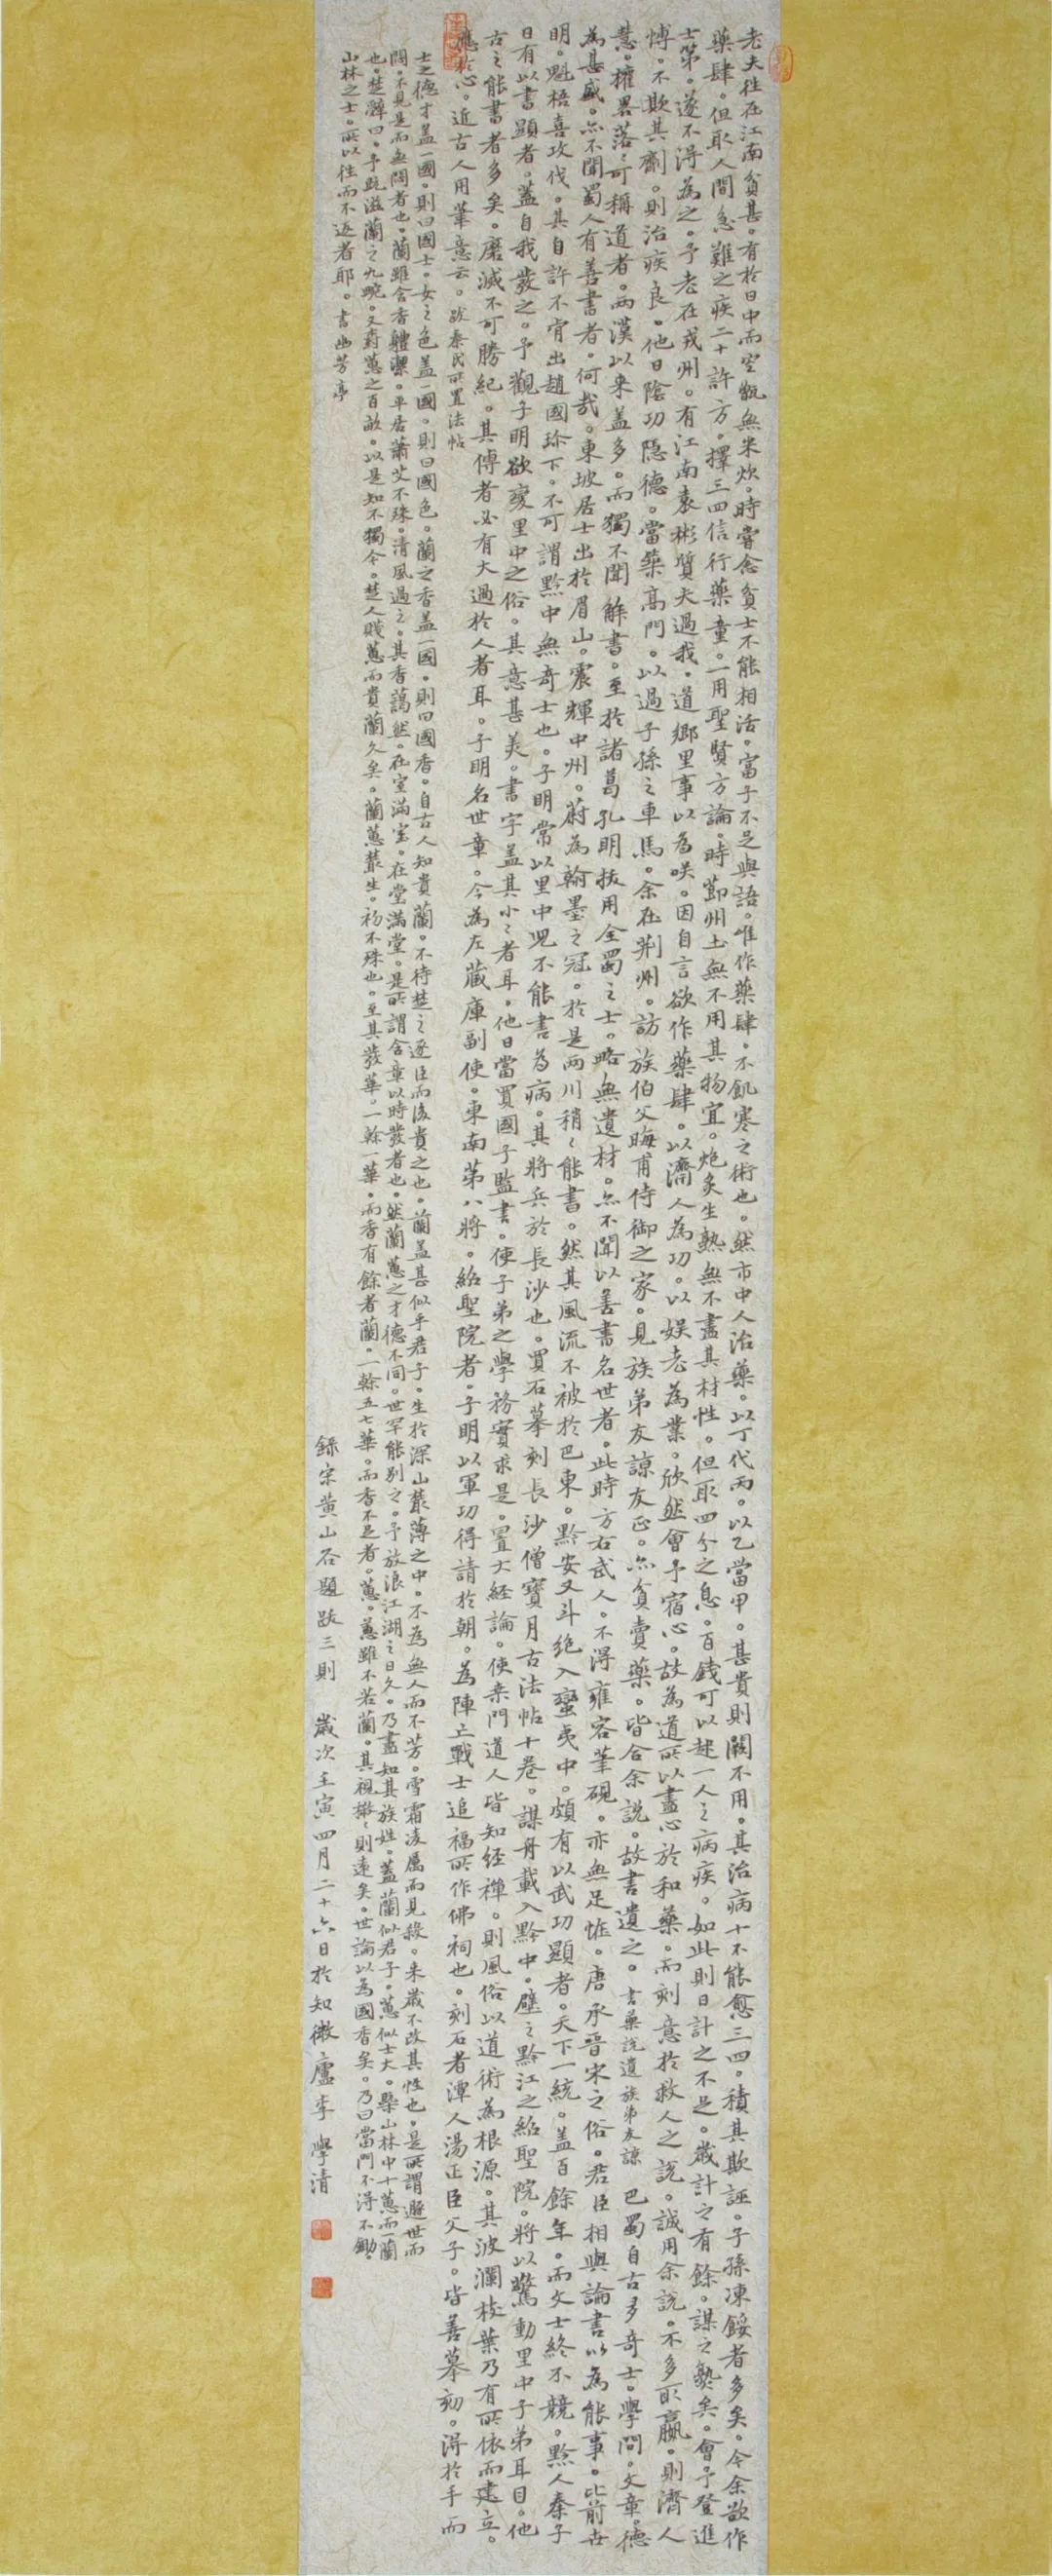 老夫往在江南貧甚。有於日中而空甑無米炊。時嘗念貧士不能相活。富子不足與語。唯作藥肆。不飢寒之術也。然市中人治藥。以丁代丙。以乙當甲。甚貴則闕不用。其治病十不能愈三四。積其欺誣。子孫凍餒者多矣。今余欲作
藥肆。但取人間急難之疾二十許方。擇三四信行藥童。一用聖賢方論。時節州土無不用其物宜。炮炙生熟無不盡其材性。但取四分之息。百錢可以起一人之病疾。如此則日計之不足。歲計之有餘。謀之熟矣。會予登進
士第。遂不得為之。予老在戎州。有江南袁彬質夫過我。道鄉里事以為咲。因自言欲作藥肆。以濟人為功。以娛老為業。欣然會予宿心。故為道所以盡心於和藥。而刻意於救人之說。誠用余說。不多取贏。則濟人
博。不欺其劑。則治疾良。他日陰功隱德。當築高門。以過子孫之車馬。余在荆州。訪族伯父晦甫侍御之家。見族弟友諒友正。亦貧賣藥。皆合余說。故書遺之。書藥說遺族弟友諒 巴蜀自古多奇士。學問。文章。德
慧。權畧落〻可稱道者。兩漢以来盖多。而獨不聞解書。至於諸葛孔明拔用全蜀之士。略無遺材。亦不聞以善書名世者。此時方右武人。不得雍容筆硯。亦無足恠。唐承晉宋之俗。君臣相與論書以為能事。比前世
為甚盛。亦不聞蜀人有善書者。何哉。東坡居士出於眉山。震輝中州。蔚為翰墨之冠。於是兩川稍〻能書。然其風流不被於巴東。黔安又斗絶入蠻夷中。頗有以武功顯者。天下一統。盖百餘年。而文士終不競。黔人秦子
明。魁梧喜攻伐。其自許不肯出趙國珍下。不可謂黔中無奇士也。子明常以里中兒不能書為病。其將兵於長沙也。買石摹刻長沙僧寶月古法帖十卷。謀舟載入黔中。壁之黔江之紹聖院。將以驚動里中子弟耳目。他
日有以書顯者。蓋自我發之。予觀子明欲變里中之俗。其意甚美。書字盖其小〻者耳。他日當買國子監書。使子弟之學務實求是。置大經論。使桑門道人皆知經禪。則風俗以道術為根源。其波瀾枝葉乃有所依而建立。
古之能書者多矣。磨滅不可勝紀。其傳者必有大過於人者耳。子明名世章。今為左藏庫副使。東南第八將。紹聖院者。子明以軍功得請於朝。為陣亡戰士追福所作佛祠也。刻石者潭人湯正臣父子。皆善摹刻。得於手而
應於心。近古人用筆意云。跋秦氏所置法帖
士之德才盖一國。則曰國士。女之色盖一國。則曰國色。蘭之香盖一國。則曰國香。自古人知貴蘭。不待楚之逐臣而後貴之也。蘭盖甚似乎君子。生於深山叢薄之中。不為無人而不芳。雪霜凌厲而見殺。来歲不改其性也。是所謂遯世而
悶。不見是而無悶者也。蘭雖含香體潔。平居蕭艾不殊。清風過之。其香藹然。在室滿室。在堂滿堂。是所謂含章以時發者也。然蘭蕙之才德不同。世罕能别之。予放浪江湖之日久。乃盡知其族姓。蓋蘭似君子。蕙似士大。槩山林中十蕙而一蘭
也。楚辭曰。予既滋蘭之九畹。又樹蕙之百畝。以是知不獨今。楚人賤蕙而貴蘭久矣。蘭蕙叢生。初不殊也。至其發華。一榦一華。而香有餘者蘭。一榦五七華。而香不足者。蕙。蕙雖不若蘭。其視椒〻則遠矣。世論以為國香矣。乃曰當門不得不鋤。
山林之士。所以往而不返者耶。書幽芳亭
錄宋黄山谷題跋三則 歲次壬寅四月二十六日於知微廬李學清